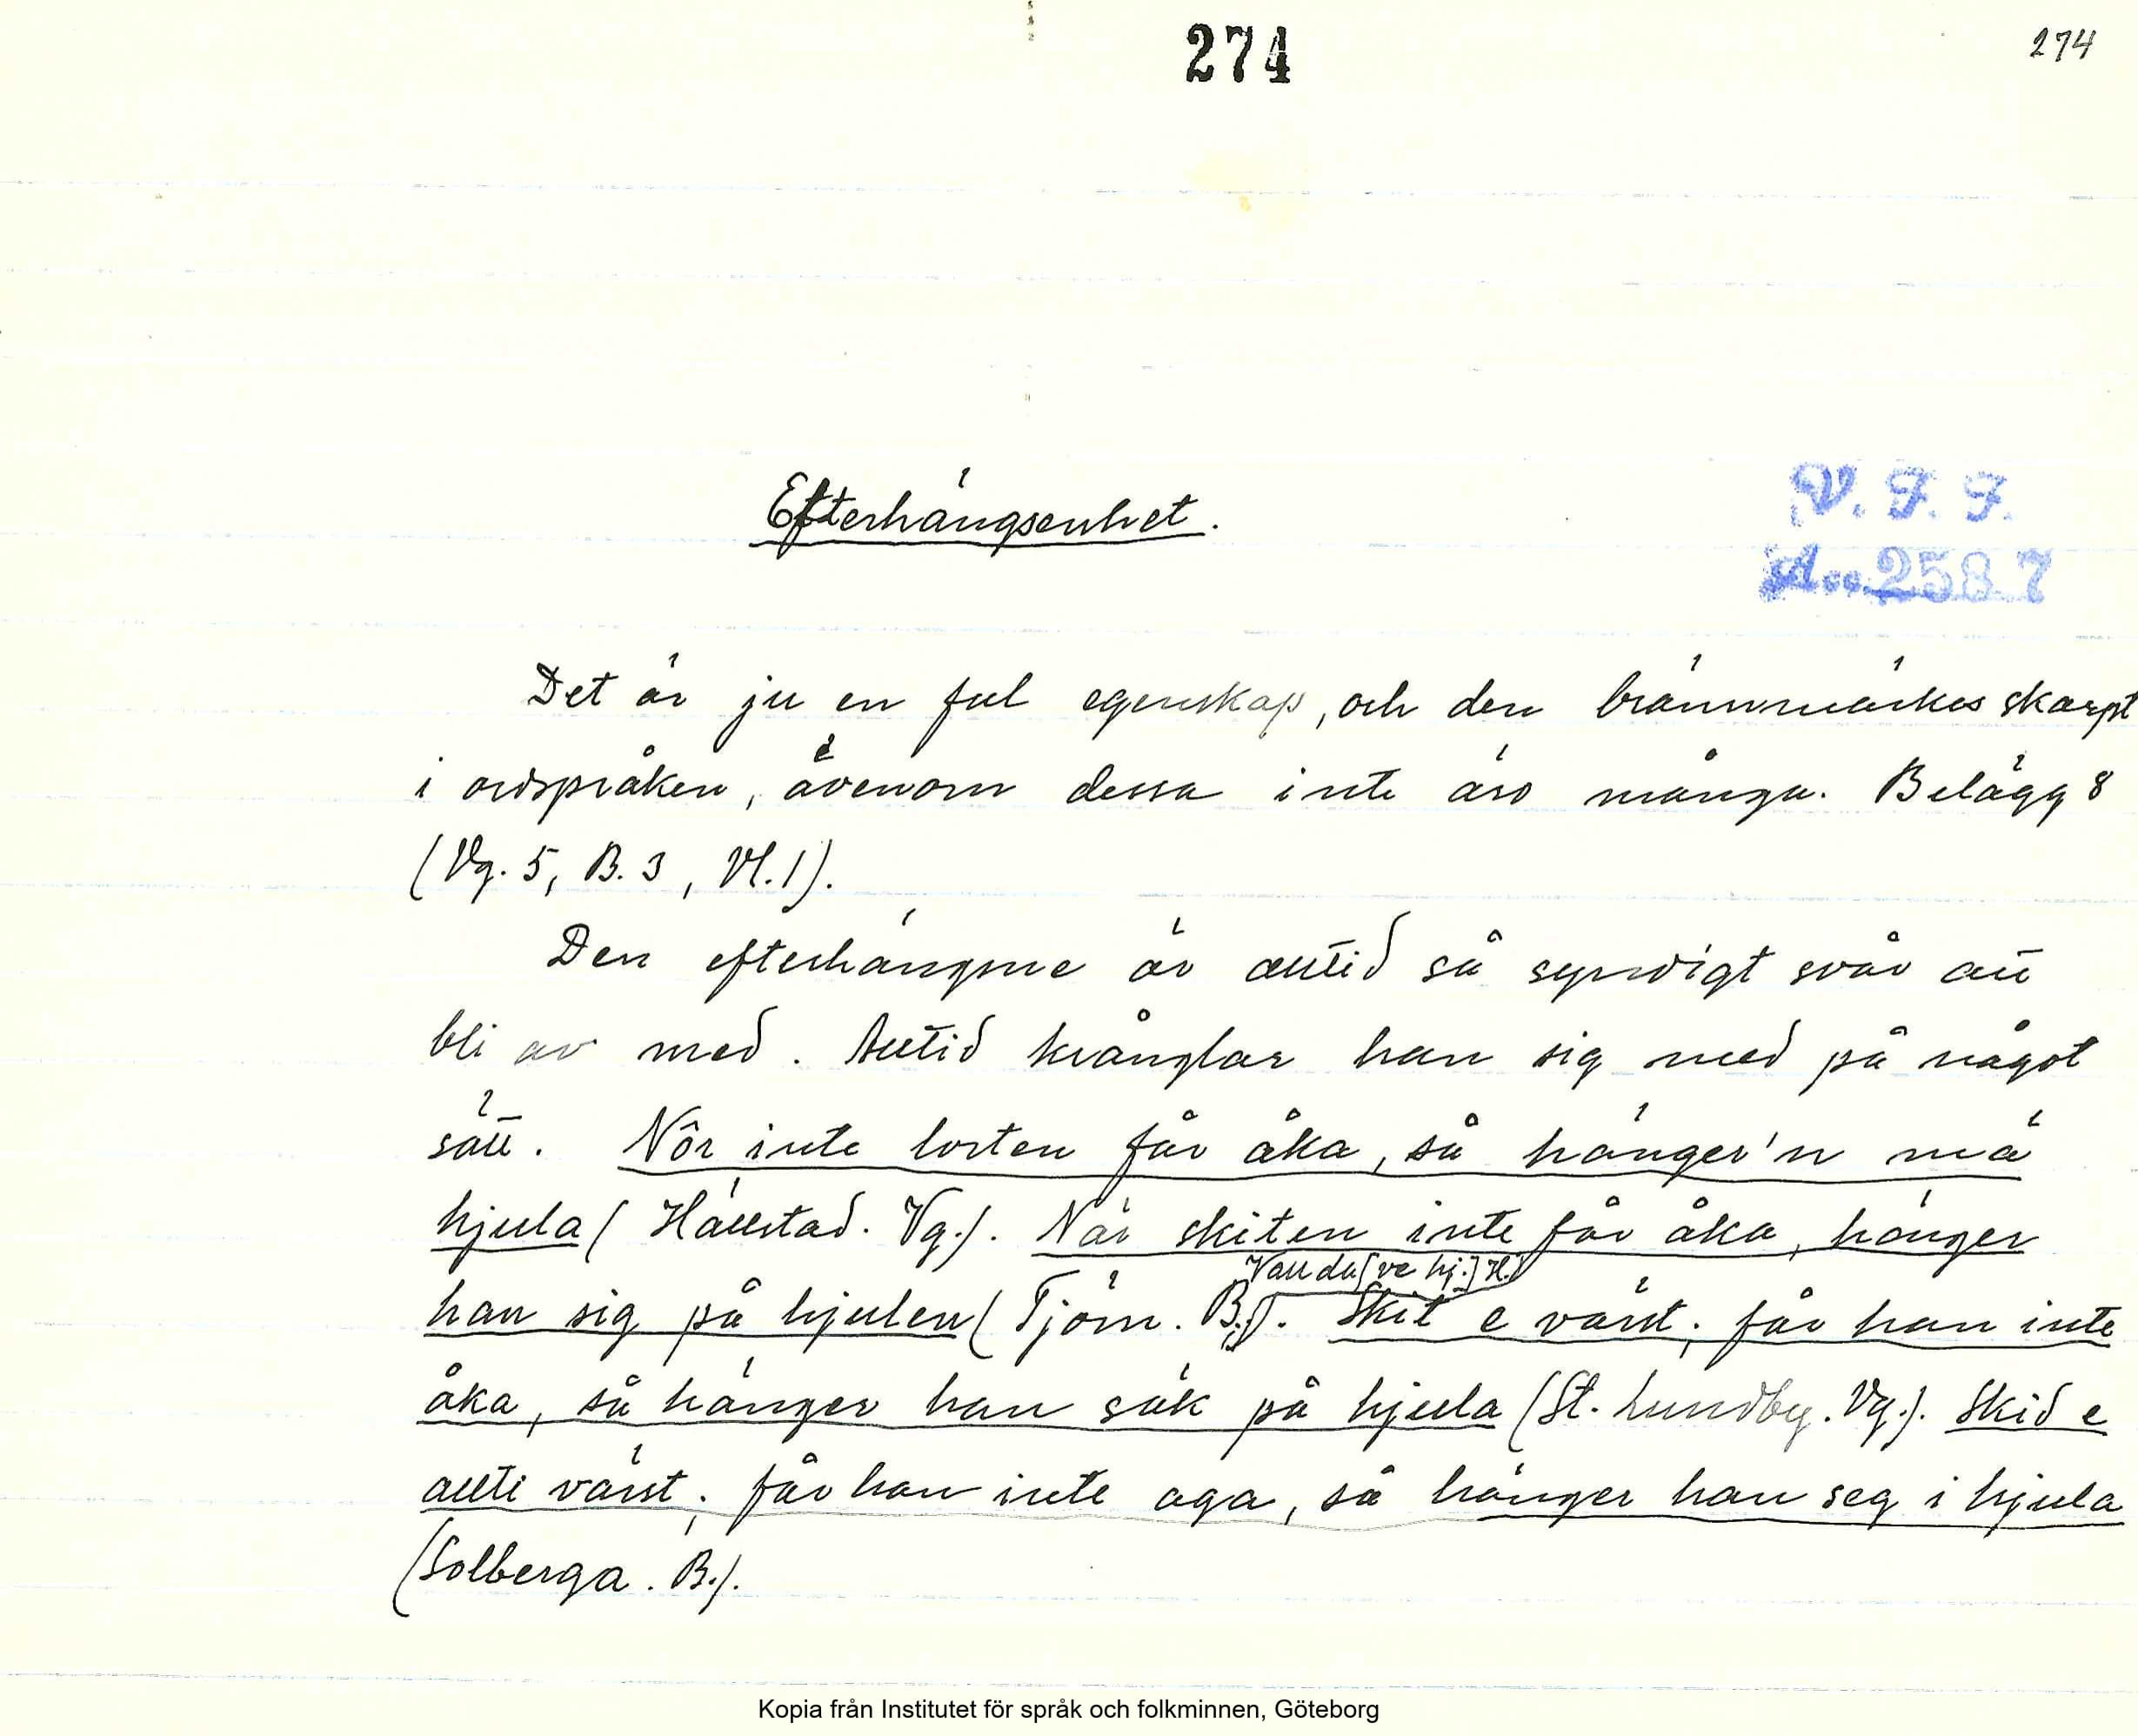 274
274
Efterhängsenhet.
V. F. F.
Acc. 2587
Det är ju en ful egenskap, och den brännmärkes skarpt
i ordspråken, ävenom dessa inte äro många. Belägg 8
(Vg. 5, B. 3, Vl. 1).
Den efterhängsne är alltid så syndigt svår att
bli av med. Alltid krånglar han sig med på något
sätt. Nôr inte lorten får åka, så hänger'n mä
hjula (Hällstad. Vg.). När skiten inte får åka, hänger
Vallda [ve hj.] H.)
han sig på hjulen (Tjörn. B.;). Skit e värst; får han inte
åka, så hänger han säk på hjula (St. Lundby. Vg.). Skid e
allti värst; får han inte aga, så hänger han seg i hjula
(Solberga. B.).
Kopia från Institutet för språk och folkminnen, Göteborg